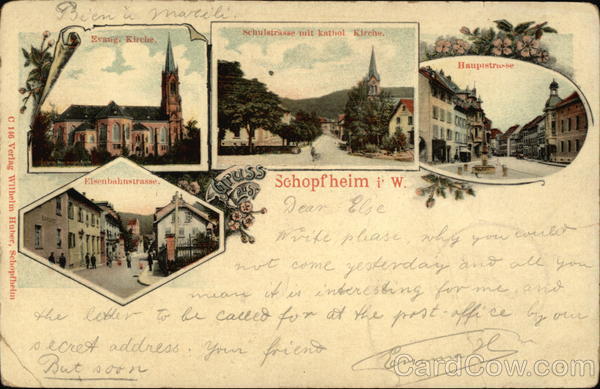 Bien à
Evang. Kirche.
Schulstrasse mit kathol. Kirche.
Hauptstrasse
Eisenbahnstrasse.
Gruss aus
Schopfheim i. W.
C 146 Verlag Wilhelm Huber, Schopfheim
Dear Else
Write please, why you could
not come yesterday and all you
mean it is interesting for me, and
the letter to be called for at the post-office by our
secret address. Your friend
But soon
CardCow.com